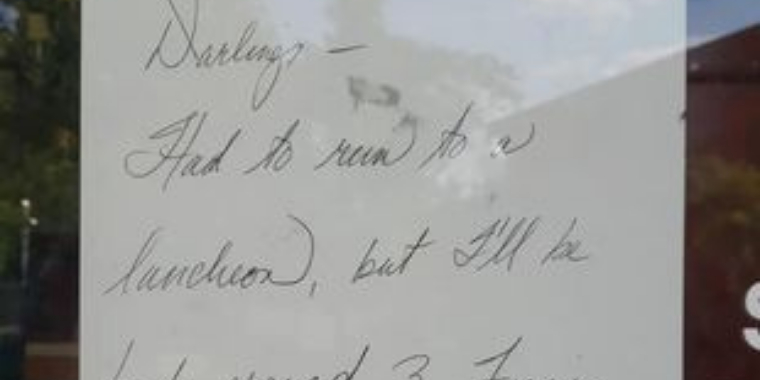 Darlings —
Had to run to a
luncheon, but I'll be
3
S